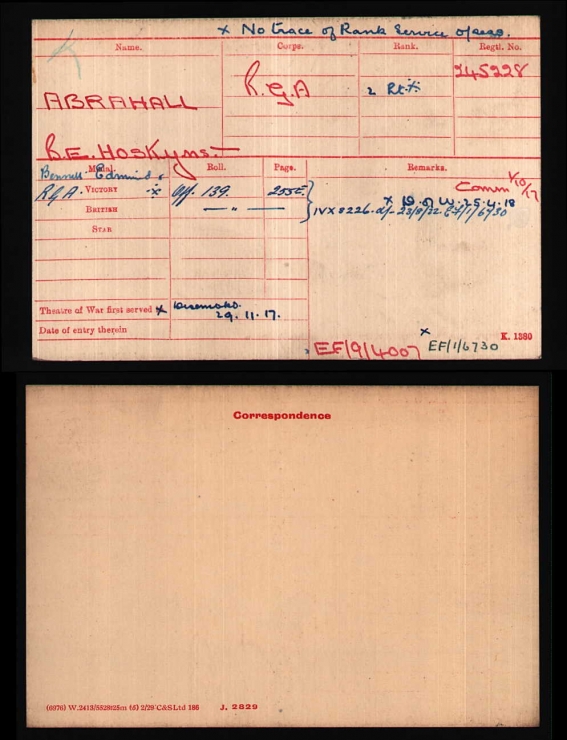 x No trace of Rank Service o/seas.
Name. Corps. Rank. Regtl. No.
ABRAHALL R.G.A 2/Lt. 245228
B.E. Hoskyns.
Bennet Edmund
Medal. Roll. Page. Remarks.
Comm 1/10/17
RGA. VICTORY x Off 139. 255E
x D. of W. 25.4.18
BRITISH — " —
IVX 8226. d/- 23/8/22. EF/1/6730
STAR
Theatre of War first served x
29.11.17.
Date of entry therein
x EF/9/4007 x EF/1/6730 K. 1380
Correspondence
(6976) W.2413/5528 125m (5) 2/29 C&S Ltd 186 J. 2829